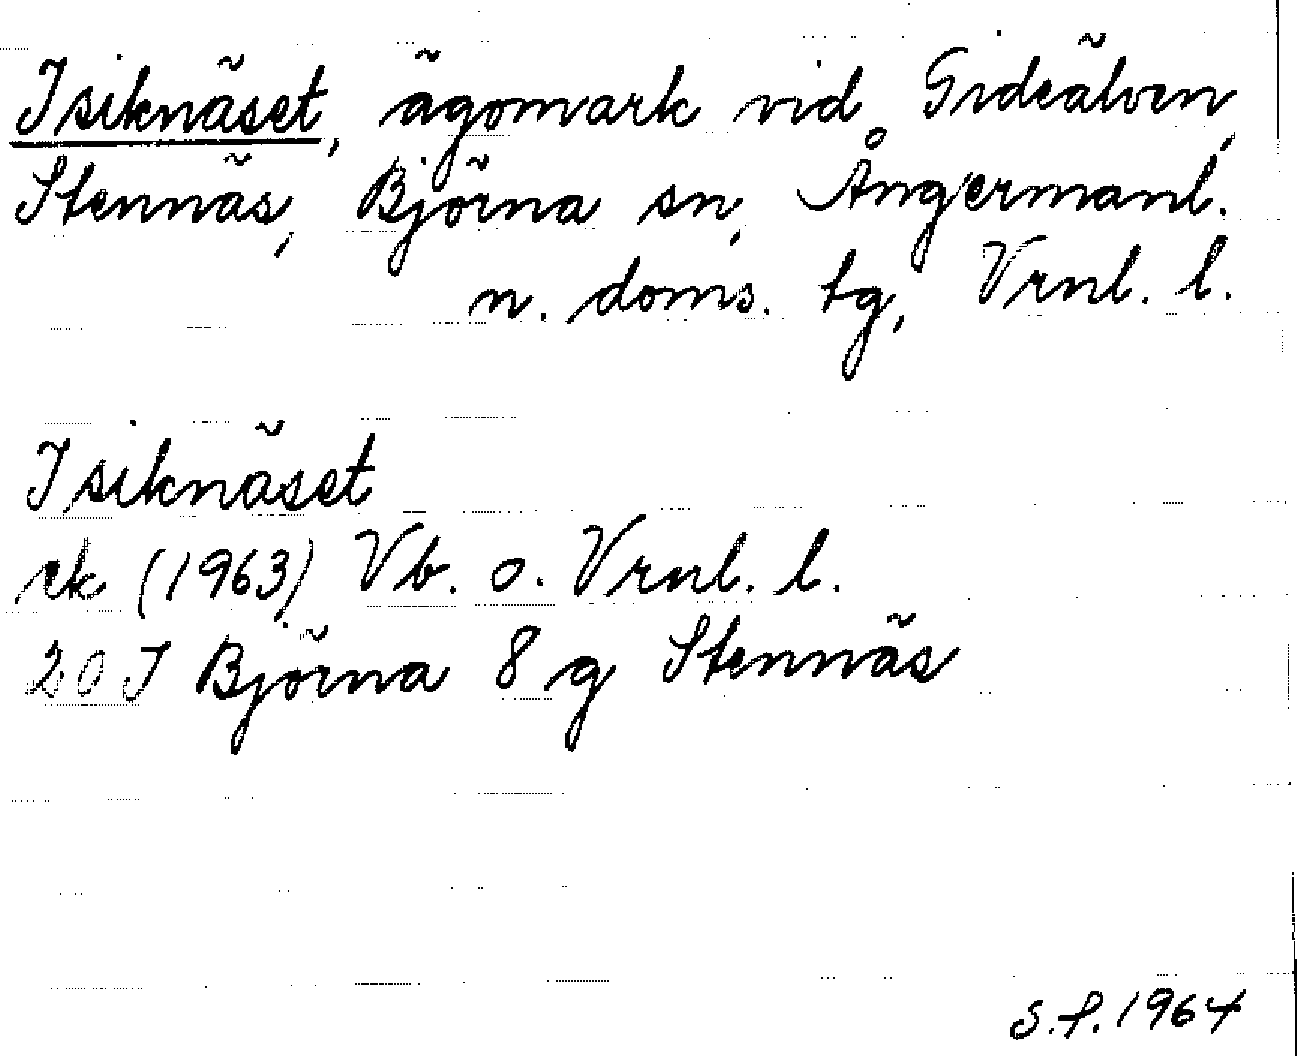 Isiknäset, ägomark vid Gideälven,
Stennäs, Björna sn, Ångermanl.
n. doms. tg, Vrnl. l.
Isiknäset
ek (1963) Vb. o. Vrnl. l.
20 I Björna 8 g Stennäs
S.P. 1964